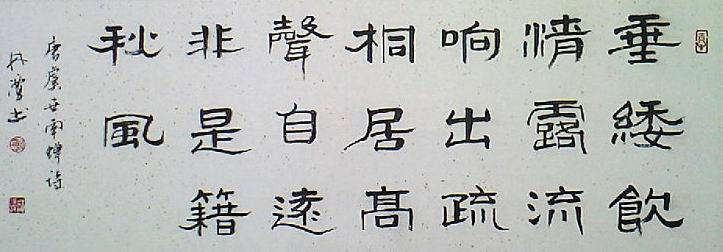 垂緌飲
清露流
响出疏
桐居高
聲自遠
非是籍
秋風
唐虞世南蟬詩